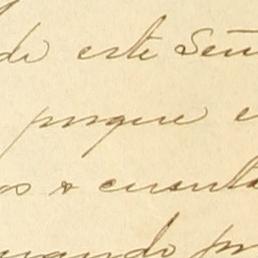 de este Señ
porque e
os o cuanta
uando pr